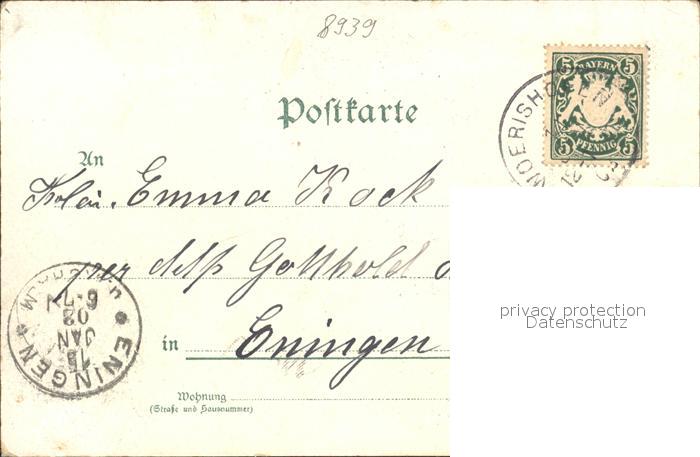 8939
5 BAYERN 5
5 PFENNIG 5
WOERISHOFEN
Postkarte
An
Emma Kock
per Gotthold
privacy protection
Datenschutz
in Eningen
ENINGEN
15
JAN
03
6-7
Wohnung
(Straße und Hausnummer)